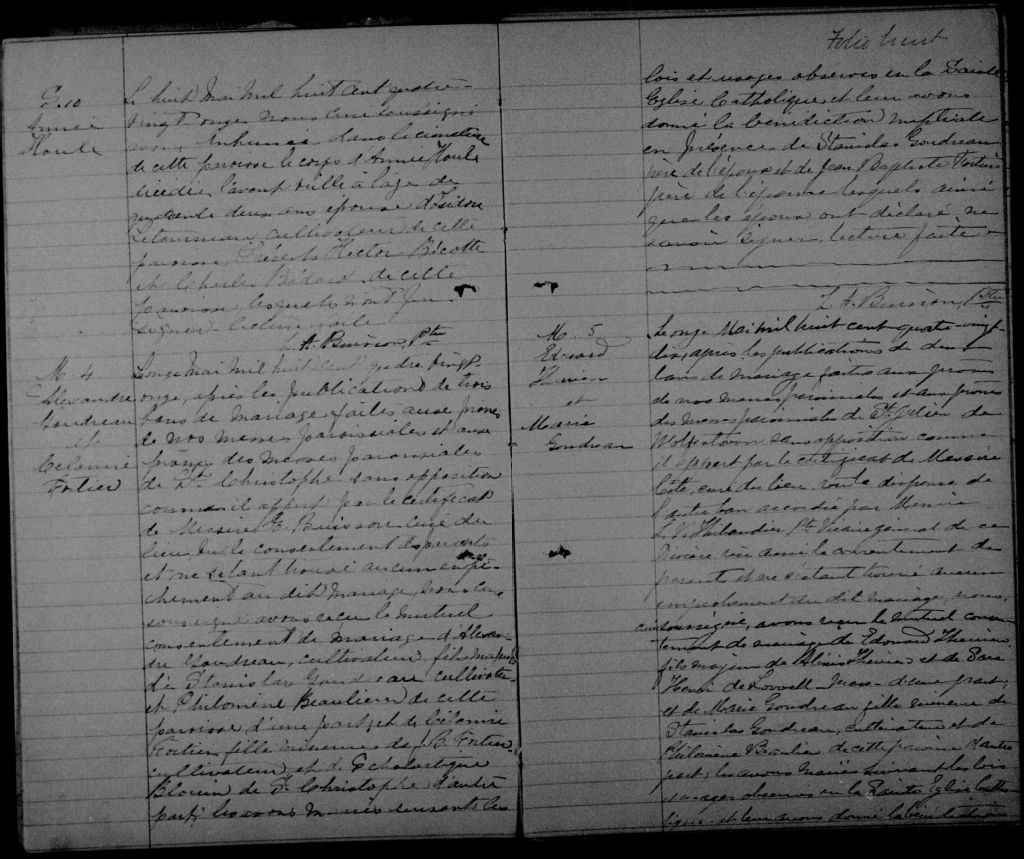 S. 10
Annie
Houle
Le huit Mai Mil huit cent quatre-
vingt-onze nous Curé soussigné
avons inhumé dans le cimetière
de cette paroisse le corps d'Annie Houle
décédée l'avant veille à l'âge de
quarente deux ans épouse d'Isidore
Letourneau cultivateur de cette
paroisse. Présents Hector Bécotte
et Charles Bédard de cette
paroisse, lesquels n'ont pu
signer lecture faite
L. A. Buisson, Ptre
M. 4
Alexandre
Goudreau
et
Célanire
Fortier
L'onze Mai Mil huit cent quatre vingt-
onze, après les publications de trois
bans de mariage faites aux prones
de nos messes paroissiales et aux
prônes des messes paroissiales
de St. Christophe sans opposition
comme il appert par le certificat
de Messire Buisson curé du
lieu, vu le consentement des parents
et ne s'étant trouvé aucun empê-
chement au dit mariage, nous curé
soussigné avons reçu le mutuel
consentement de mariage d'Alexan-
dre Goudreau, cultivateur, fils majeur
de Stanislas Goudreau cultivateur
et Philomène Beaulieu de cette
paroisse d'une part, et de Célanire
Fortier fille mineure de J. B. Fortier
cultivateur et de Scholastique
Blouin de St. Christophe d'autre
part; les avons mariés suivant les
Folio huit
lois et usages observés en la Sainte
Eglise Catholique et leur avons
donné la bénédiction nuptiale
en présence de Stanislas Goudreau
père de l'époux et de Jean Baptiste Fortier
père de l'épouse lesquels ainsi
que les époux ont déclaré ne
savoir signer. Lecture faite
L. A. Buisson, Ptre
M. 5
Edouard
Therrien
et
Marie
Goudreau
Le onze Mai mil huit cent quatre-vingt
dix, après les publications de deux
bans de mariage faites aux prônes
de nos messes paroissiales et aux prônes
des messes paroissiales de St. Julien de
Wolfestown sans opposition comme
il appert par le certificat de Messire
Côté, curé du lieu, vu la dispense de
l'autre ban accordée par Messire
Ptre Vicaire général de ce
Diocèse vu aussi le consentement des
parents et ne s'étant trouvé aucun
empêchement au dit mariage, nous,
curé soussigné, avons reçu le mutuel consen-
tement de mariage de Edouard Therrien
fils majeur de Alexis Therrien et de
de Lowell Mass. d'une part;
et de Marie Goudreau fille mineure de
Stanislas Goudreau, cultivateur et de
Philomène Beaulieu de cette paroisse d'autre
part; les avons mariés suivant les lois
et usages observés en la Sainte Eglise Catho-
lique et leur avons donné la bénédiction